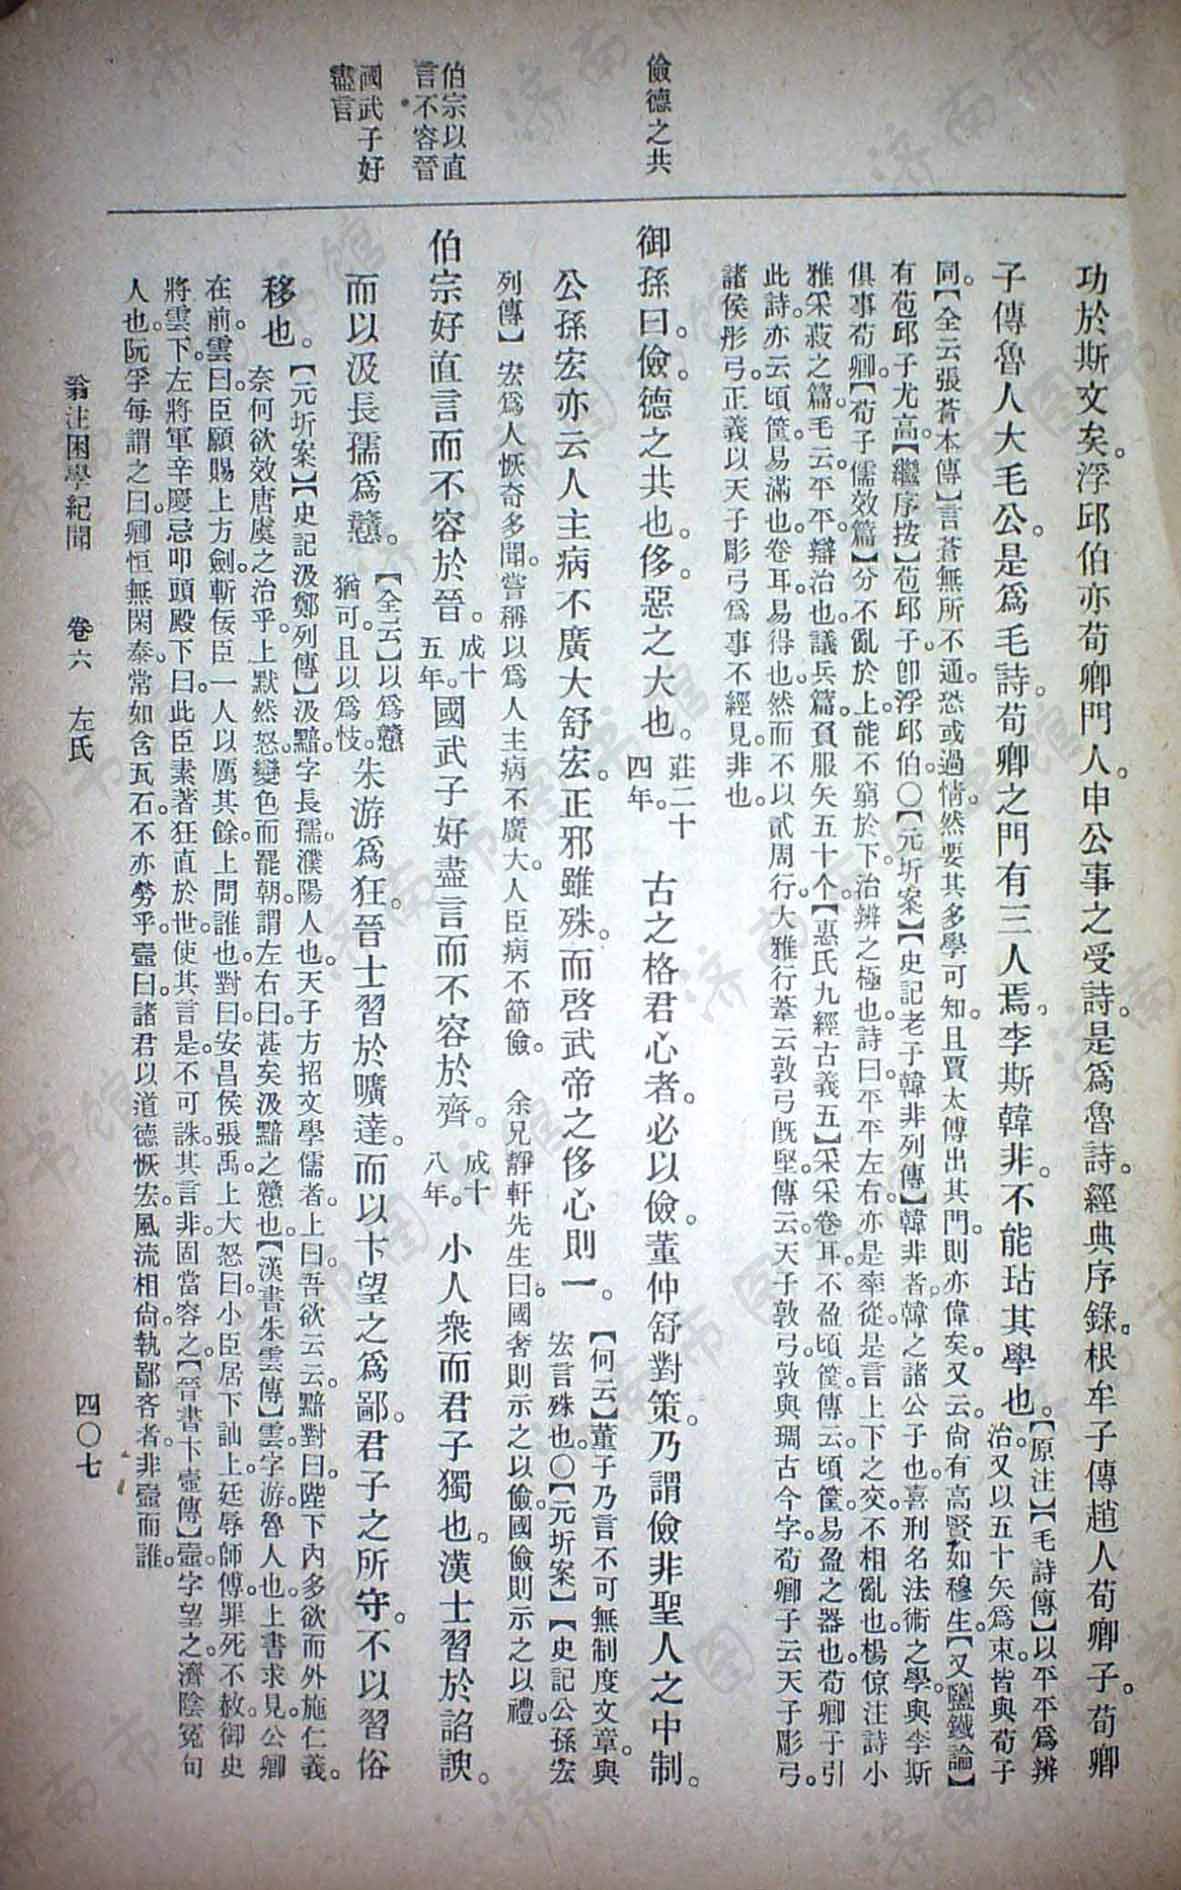 儉德之共
伯宗以直
言不容晉
國武子好
盡言
功於斯文矣。浮邱伯亦荀卿門人。申公事之受詩。是爲魯詩。經典序錄。根牟子傳趙人荀卿子。荀卿
子傳魯人大毛公。是爲毛詩。荀卿之門有三人焉。李斯韓非。不能玷其學也。【原注】【毛詩傳】以平平爲辨
治。又以五十矢爲束。皆與荀子
同。【全云張蒼本傳】言蒼無所不通。恐或過情。然要其多學可知。且賈太傅出其門。則亦偉矣。又云。尙有高賢。如穆生。【又鹽鐵論】
有苞邱子尤高。【繼序按】苞邱子。卽浮邱伯。〇【元圻案】【史記老子韓非列傳】韓非者。韓之諸公子也。喜刑名法術之學。與李斯
俱事荀卿。【荀子儒效篇】分不亂於上。能不窮於下。治辨之極也。詩曰。平平左右。亦是率從。是言上下之交。不相亂也。楊倞注詩小
雅采菽之篇。毛云。平平。辯治也。議兵篇。負服矢五十个。【惠氏九經古義五】采采卷耳。不盈頃筐。傳云。頃筐。易盈之器也。荀卿子引
此詩。亦云頃筐。易滿也。卷耳。易得也。然而不以貳周行。大雅行葦云敦弓旣堅。傳云。天子敦弓。敦與琱古今字。荀卿子云天子彫弓。
諸侯彤弓。正義以天子彫弓爲事不經見。非也。
御孫曰。儉。德之共也。侈。惡之大也。莊二十
四年。古之格君心者。必以儉。董仲舒對策。乃謂儉非聖人之中制。
公孫宏亦云人主病不廣大舒宏。正邪雖殊。而啓武帝之侈心則一。【何云】董子乃言不可無制度文章。與
宏言殊也。〇【元圻案】【史記公孫宏
列傳】宏爲人恢奇多聞。嘗稱以爲人主病不廣大。人臣病不節儉。余兄靜軒先生曰。國奢則示之以儉。國儉則示之以禮。
伯宗好直言而不容於晉。成十
五年。國武子好盡言而不容於齊。成十
八年。小人衆而君子獨也。漢士習於諂諛。
而以汲長孺爲戇。【全云】以爲戇
猶可。且以爲忮。朱游爲狂。晉士習於曠達。而以卞望之爲鄙。君子之所守。不以習俗
移也。【元圻案】【史記汲鄭列傳】汲黯。字長孺。濮陽人也。天子方招文學儒者。上曰。吾欲云云。黯對曰。陛下內多欲而外施仁義。
奈何欲效唐虞之治乎。上默然怒。變色而罷朝。謂左右曰。甚矣汲黯之戇也。【漢書朱雲傳】雲。字游。魯人也。上書求見。公卿
在前。雲曰。臣願賜上方劍。斬佞臣一人以厲其餘。上問誰也。對曰。安昌侯張禹。上大怒曰。小臣居下訕上。廷辱師傅。罪死不赦。御史
將雲下。左將軍辛慶忌叩頭殿下曰。此臣素著狂直於世。使其言是。不可誅。其言非。固當容之。【晉書卞壼傳】壼。字望之。濟陰冤句
人也。阮孚每謂之曰。卿恒無閑泰。常如含瓦石。不亦勞乎。壼曰。諸君以道德恢宏。風流相尙。執鄙吝者。非壼而誰。
翁注困學紀聞　卷六　左氏　四〇七